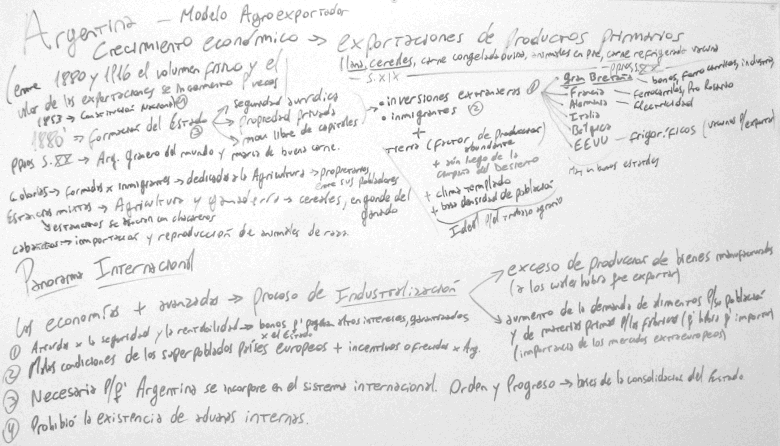 Argentina – Modelo Agroexportador
Crecimiento económico → exportaciones de Productos Primarios
lana, cereales, carne congelada ovina, animales en pie, carne refrigerada vacuna
S. XIX
ppios S. XX
(entre 1880 y 1916 el volumen físico y el
valor de las exportaciones se incrementó veces
1853 → Constitución Nacional ④
1880' → Formación del Estado ③
seguridad jurídica
propiedad privada
mov. libre de capitales
• inversiones extranjeras ①
• inmigrantes ②
+
Tierra (Factor de Producción
abundante
+ aún luego de la
Conquista del Desierto
+ clima templado
+ baja densidad de población
Ideal p/el trabajo agrario
Gran Bretaña → bonos, ferrocarriles, industria
Francia → Ferrocarriles, Pto Rosario
Alemania → Electricidad
Italia
Bélgica
EEUU – frigoríficos (vacuno p/exportar)
ppios S. XX → Arg. granero del mundo y marca de buena carne.
Colonias → formadas x inmigrantes → dedicadas a la Agricultura → propietarios
entre sus pobladores
Estancias mixtas → Agricultura y ganadería → cereales, engorde del
ganado
→ estancieros se asocian con chacareros
cabañas → importación y reproducción de animales de raza.
Panorama Internacional
Las economías + avanzadas → proceso de Industrialización
exceso de producción de bienes manufacturados
(a los cuales había que exportar)
aumento de la demanda de alimentos p/su población
y de materias primas p/las fábricas (q' había q' importar)
(importancia de los mercados extraeuropeos)
① Atraídas x la seguridad y la rentabilidad → bonos q' pagaban altos intereses, garantizados
x el Estado
② Malas condiciones de los superpoblados países europeos + incentivos ofrecidos x Arg.
③ Necesaria p/q' Argentina se incorpore en el sistema internacional. Orden y Progreso → bases de la consolidación del Estado
④ Prohibió la existencia de aduanas internas.